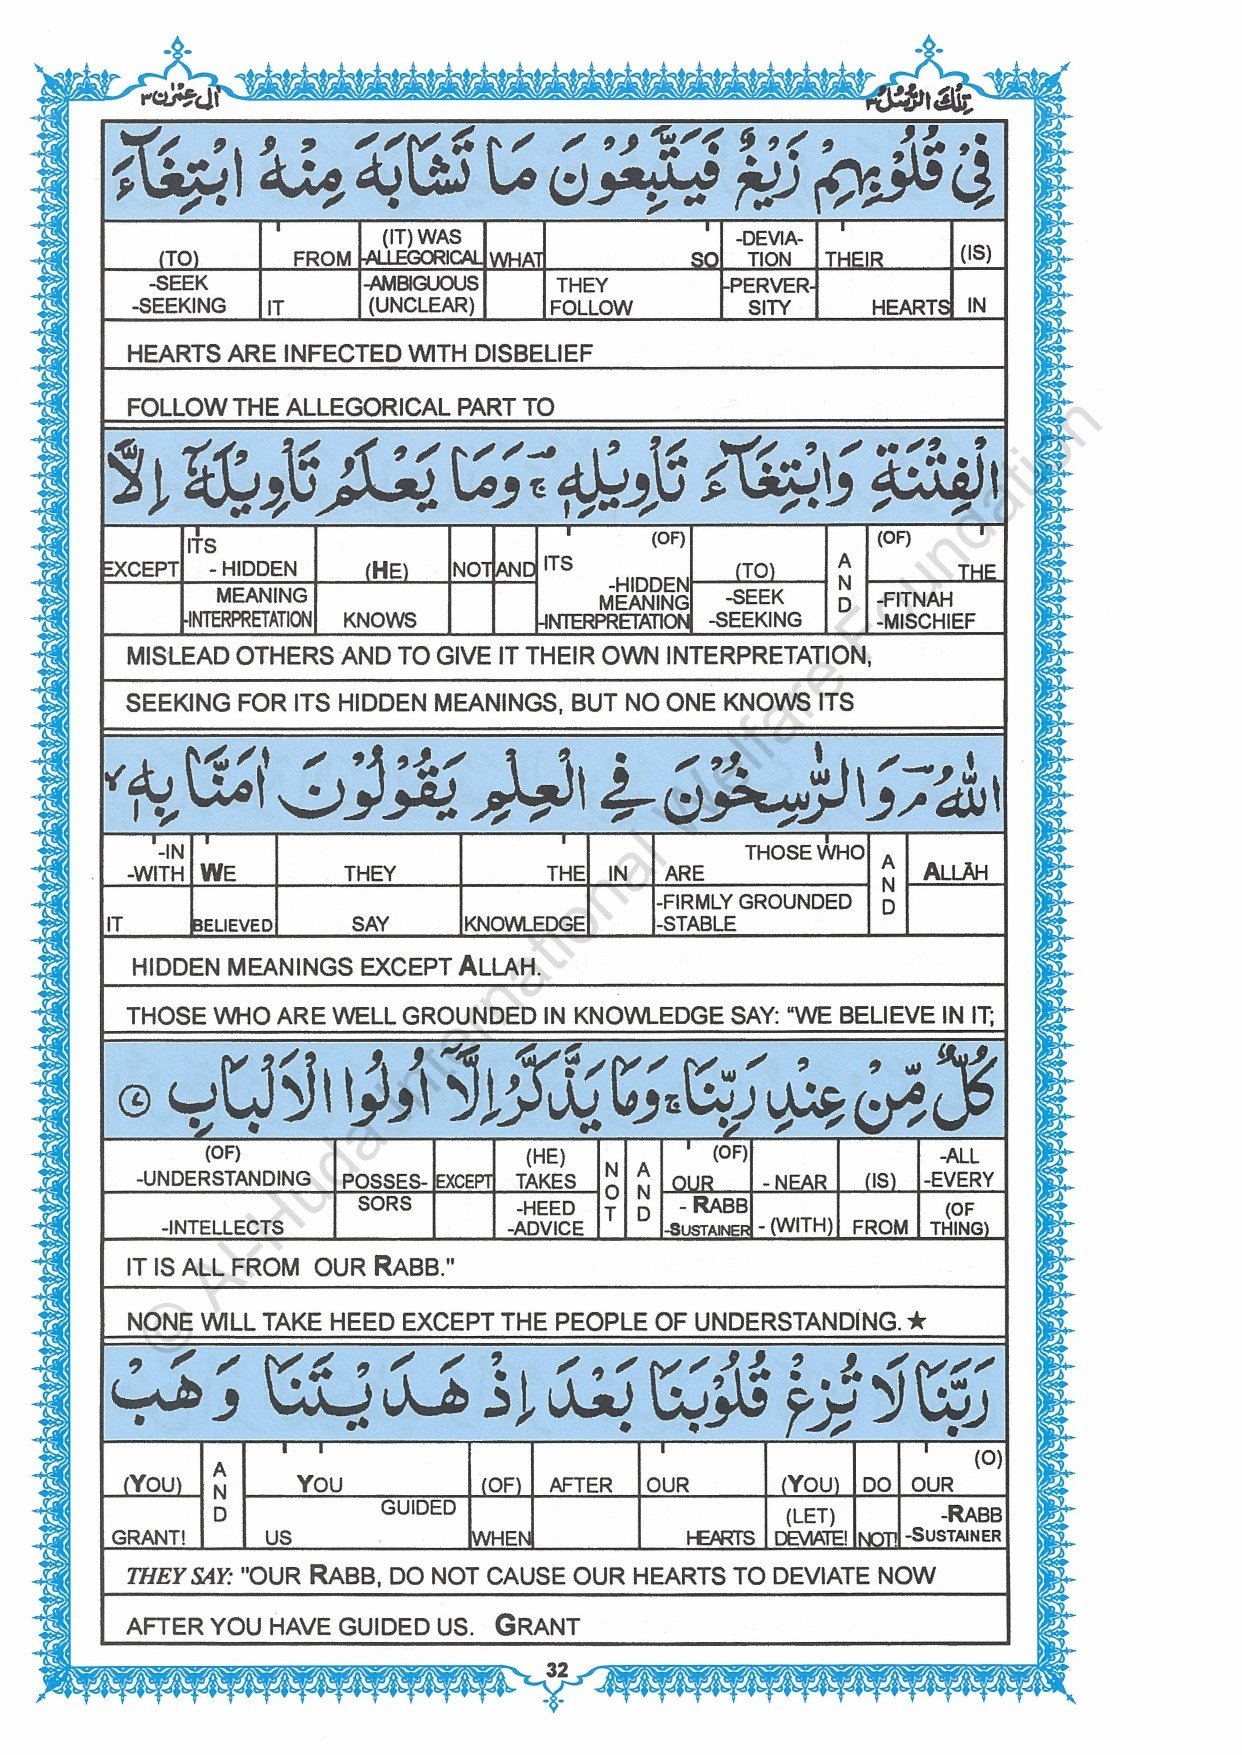 اٰلِ عِمْرٰن ٣
تِلْكَ الرُّسُلُ ٣
فِيْ قُلُوْبِهِمْ زَيْغٌ فَيَتَّبِعُوْنَ مَا تَشَابَهَ مِنْهُ ابْتِغَآءَ
(TO) FROM (IT) WAS -ALLEGORICAL WHAT SO -DEVIA-TION THEIR (IS)
-SEEK -SEEKING IT -AMBIGUOUS (UNCLEAR) THEY FOLLOW -PERVER-SITY HEARTS IN
HEARTS ARE INFECTED WITH DISBELIEF
FOLLOW THE ALLEGORICAL PART TO
الْفِتْنَةِ وَابْتِغَآءَ تَأْوِيْلِهٖ ۚ وَمَا يَعْلَمُ تَأْوِيْلَهٗۤ اِلَّا
EXCEPT ITS - HIDDEN (HE) NOT AND ITS (OF) -HIDDEN (TO) AND (OF) THE
MEANING -INTERPRETATION KNOWS MEANING -INTERPRETATION -SEEK -SEEKING -FITNAH -MISCHIEF
MISLEAD OTHERS AND TO GIVE IT THEIR OWN INTERPRETATION,
SEEKING FOR ITS HIDDEN MEANINGS, BUT NO ONE KNOWS ITS
اللّٰهُ ؔۘ وَالرّٰسِخُوْنَ فِي الْعِلْمِ يَقُوْلُوْنَ اٰمَنَّا بِهٖ ۙ
-IN -WITH WE THEY THE IN ARE THOSE WHO AND ALLĀH
IT BELIEVED SAY KNOWLEDGE -FIRMLY GROUNDED -STABLE
HIDDEN MEANINGS EXCEPT ALLAH.
THOSE WHO ARE WELL GROUNDED IN KNOWLEDGE SAY: "WE BELIEVE IN IT;
كُلٌّ مِّنْ عِنْدِ رَبِّنَا ۚ وَمَا يَذَّكَّرُ اِلَّاۤ اُولُوا الْاَلْبَابِ ٧
(OF) -UNDERSTANDING POSSES- EXCEPT (HE) TAKES NOT AND (OF) OUR - NEAR (IS) -ALL -EVERY
-INTELLECTS SORS -HEED -ADVICE - RABB -SUSTAINER - (WITH) FROM (OF THING)
IT IS ALL FROM OUR RABB."
NONE WILL TAKE HEED EXCEPT THE PEOPLE OF UNDERSTANDING. ★
رَبَّنَا لَا تُزِغْ قُلُوْبَنَا بَعْدَ اِذْ هَدَيْتَنَا وَهَبْ
(YOU) AND YOU (OF) AFTER OUR (YOU) DO OUR (O)
GRANT! US GUIDED WHEN HEARTS (LET) DEVIATE! NOT! -RABB -SUSTAINER
THEY SAY: "OUR RABB, DO NOT CAUSE OUR HEARTS TO DEVIATE NOW
AFTER YOU HAVE GUIDED US. GRANT
32
© Al-Huda International Welfare Foundation